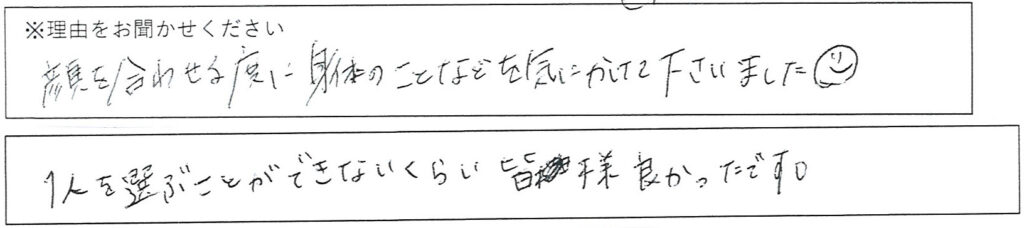 ※理由をお聞かせください
顔を合わせる度に身体のことなどを気にかけて下さいました
1人を選ぶことができないくらい皆様良かったです。